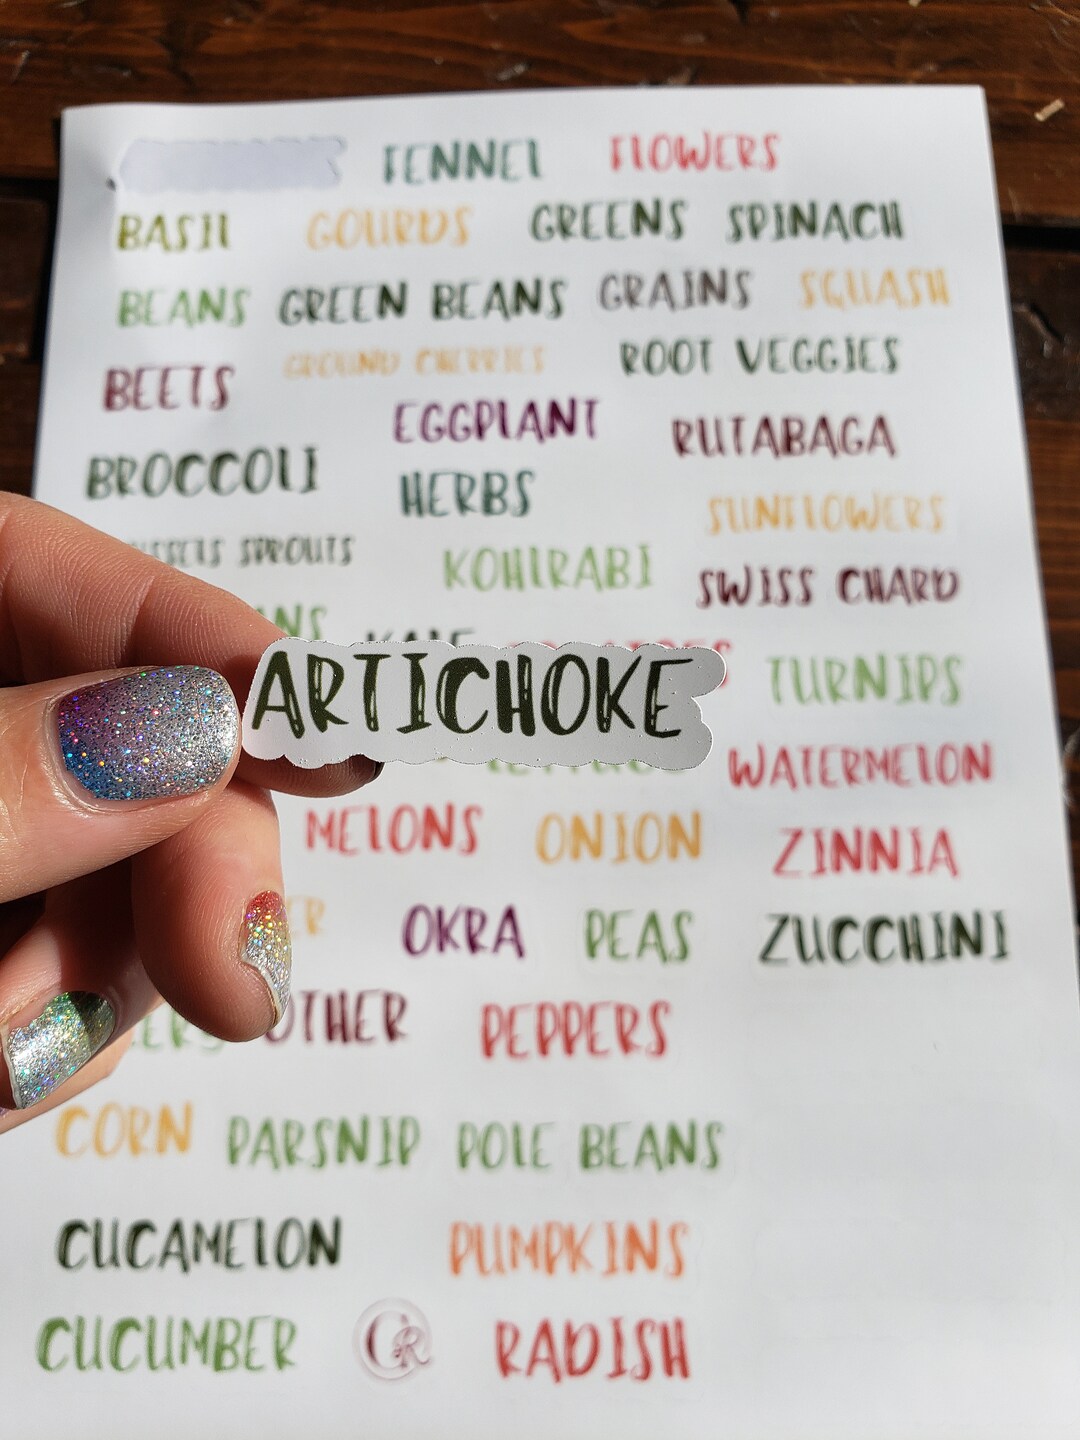 FENNEL FLOWERS
BASIL GOURDS GREENS SPINACH
BEANS GREEN BEANS GRAINS SQUASH
BEETS GROUND CHERRIES ROOT VEGGIES
EGGPLANT RUTABAGA
BROCCOLI HERBS SUNFLOWERS
SPROUTS KOHLRABI SWISS CHARD
KALE TURNIPS
ARTICHOKE
WATERMELON
MELONS ONION ZINNIA
OKRA PEAS ZUCCHINI
OTHER PEPPERS
CORN PARSNIP POLE BEANS
CUCAMELON PUMPKINS
CUCUMBER RADISH